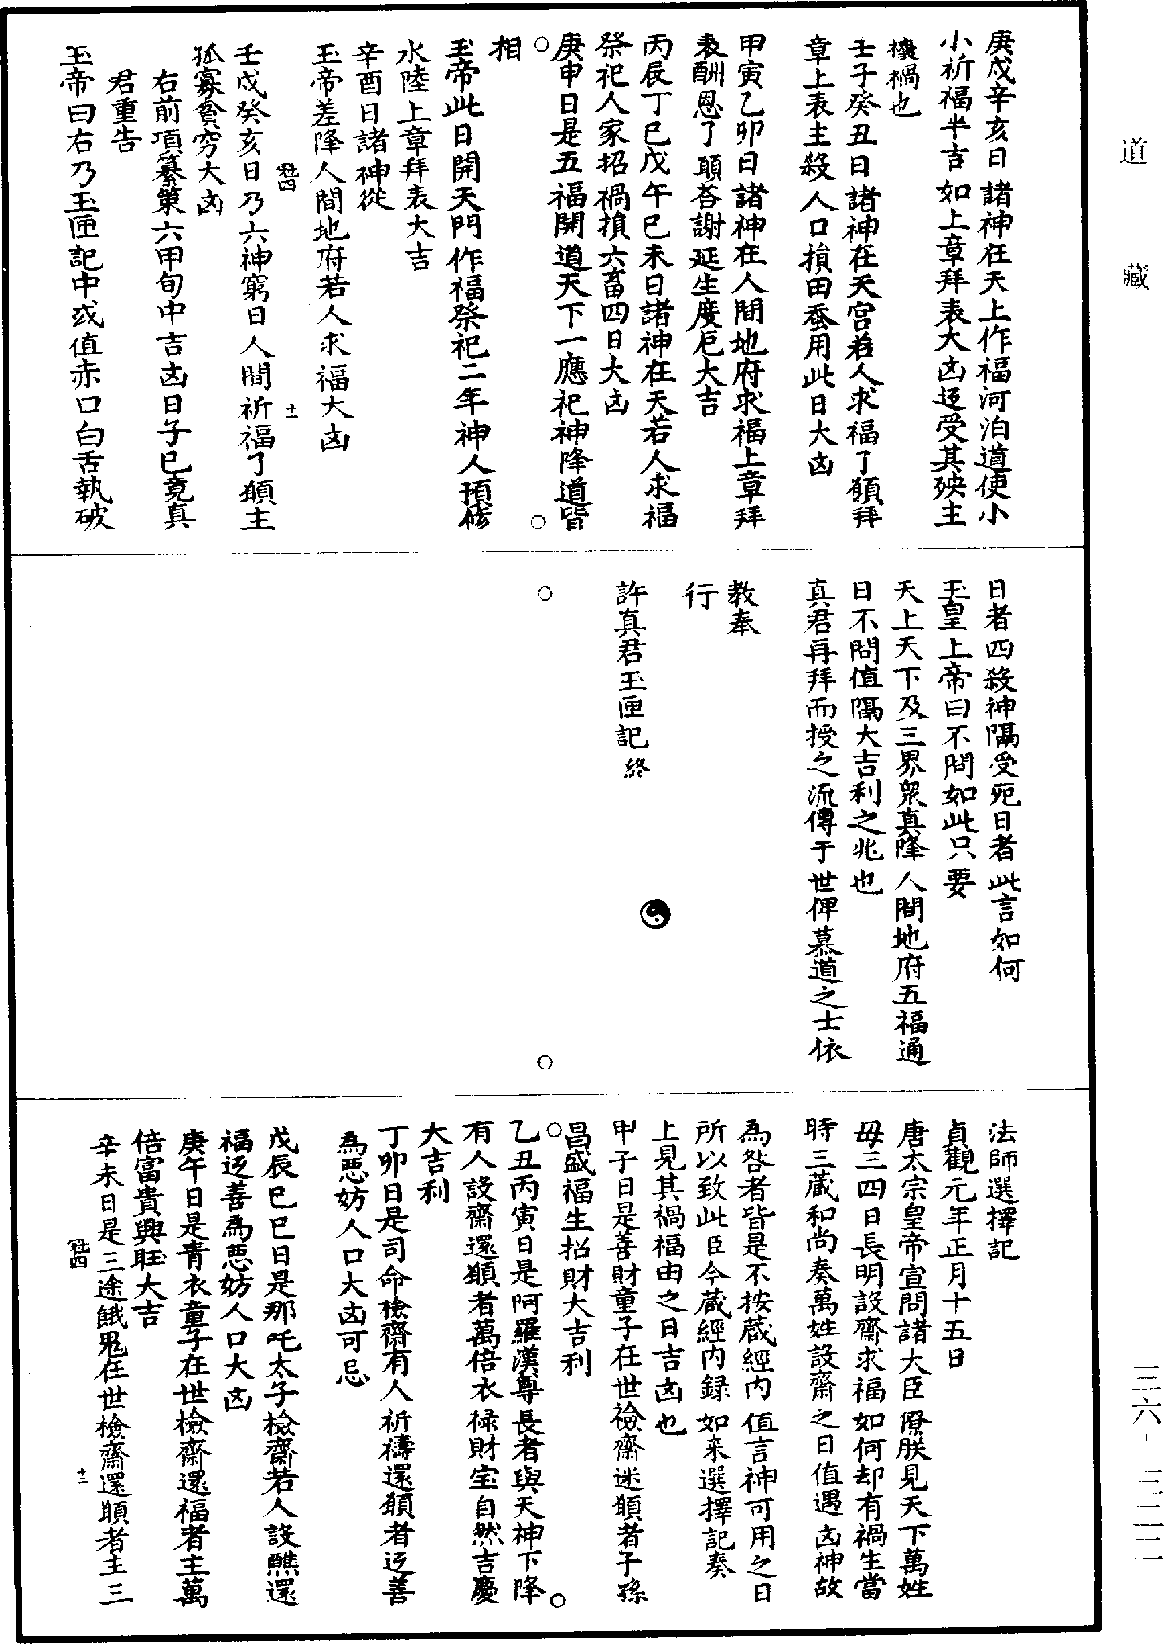 道藏
庚戌辛亥日諸神在天上作福河泊道使小
小祈福半吉如上章拜表大凶返受其殃主
禳禍也
壬子癸丑日諸神在天宮若人求福了願拜
章上表主殺人口損田蚕用此日大凶
甲寅乙卯日諸神在人間地府求福上章拜
表酬恩了願荅謝延生度厄大吉
丙辰丁巳戊午巳未日諸神在天若人求福
祭祀人家招禍損六畜四日大凶
庚申日是五福開道天下一應祀神降道皆
相
玉帝此日開天門作福祭祀二年神人預修
水陸上章拜表大吉
辛酉日諸神從
玉帝差降人間地府若人求福大凶
冠四 十一
壬戌癸亥日乃六神窮日人間祈福了願主
孤寡貧窮大凶
右前項纂集六甲旬中吉凶日子已竟真
君重告
玉帝曰右乃玉匣記中或值赤口白舌執破
日者四殺神隔受死日者此言如何
玉皇上帝曰不問如此只要
天上天下及三界衆真降人間地府五福通
日不問值隔大吉利之兆也
真君再拜而授之流傳于世俾慕道之士依
教奉
行
許真君玉匣記終
法師選擇記
貞觀元年正月十五日
唐太宗皇帝宣問諸大臣僚朕見天下萬姓
毋三四日長明設齋求福如何却有禍生當
時三藏和尚奏萬姓設齋之日值遇凶神故
為咎者皆是不按藏經內值言神可用之日
所以致此臣今藏經內録如来選擇記奏
上見其禍福由之日吉凶也
甲子日是善財童子在世檢齋還願者子孫
昌盛福生招財大吉利
乙丑丙寅日是阿羅漢尊長者與天神下降
有人設齋還願者萬倍衣禄財宝自然吉慶
大吉利
丁卯日是司命檢齋有人祈禱還願者返善
為惡妨人口大凶可忌
戊辰巳巳日是那吒太子檢齋若人設醮還
福返善為惡妨人口大凶
庚午日是青衣童子在世檢齋還福者主萬
倍富貴興旺大吉
辛未日是三途餓鬼在世檢齋還願者主三
冠四 十二
三六-三二二